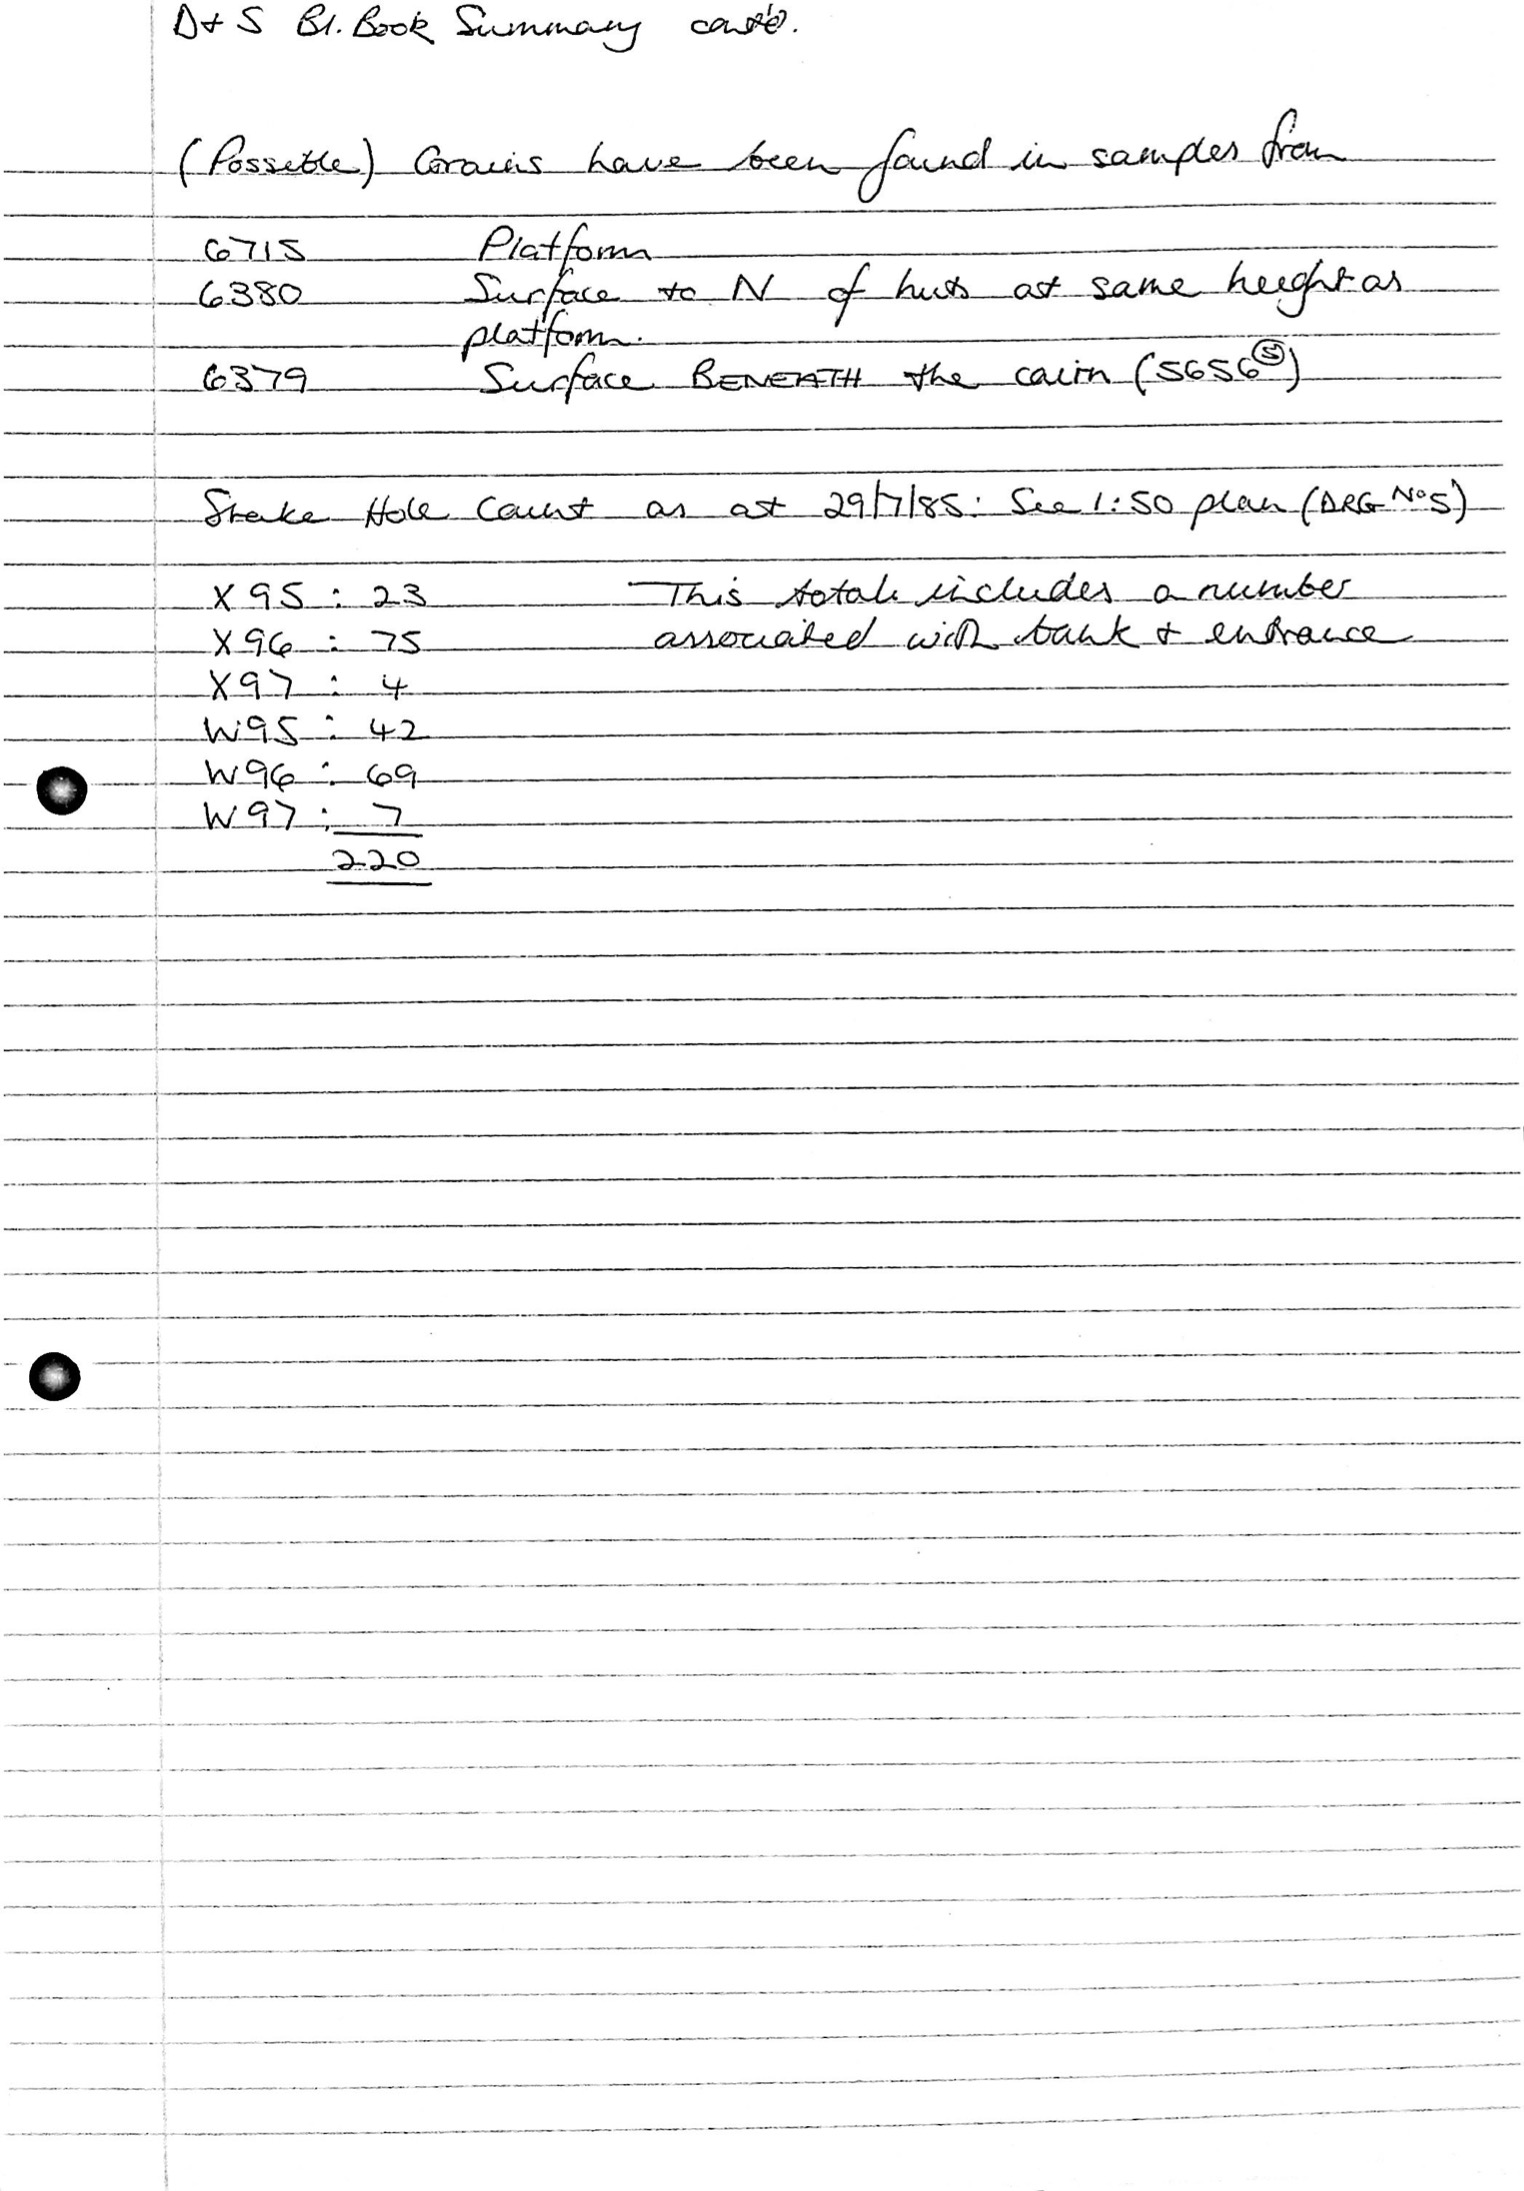 D + S Bl. Book Summary cont'd.
(Possible) Grains have been found in samples from
6715 Platform
6380 Surface to N of huts at same height as
platform.
6379 Surface BENEATH the cairn (5656 (S))
Stake Hole Count as at 29/7/85: See 1:50 plan (DRG No 5)
X95 : 23 This total includes a number
X96 : 75 associated with bank + entrance
X97 : 4
W95 : 42
W96 : 69
W97 : 7
220